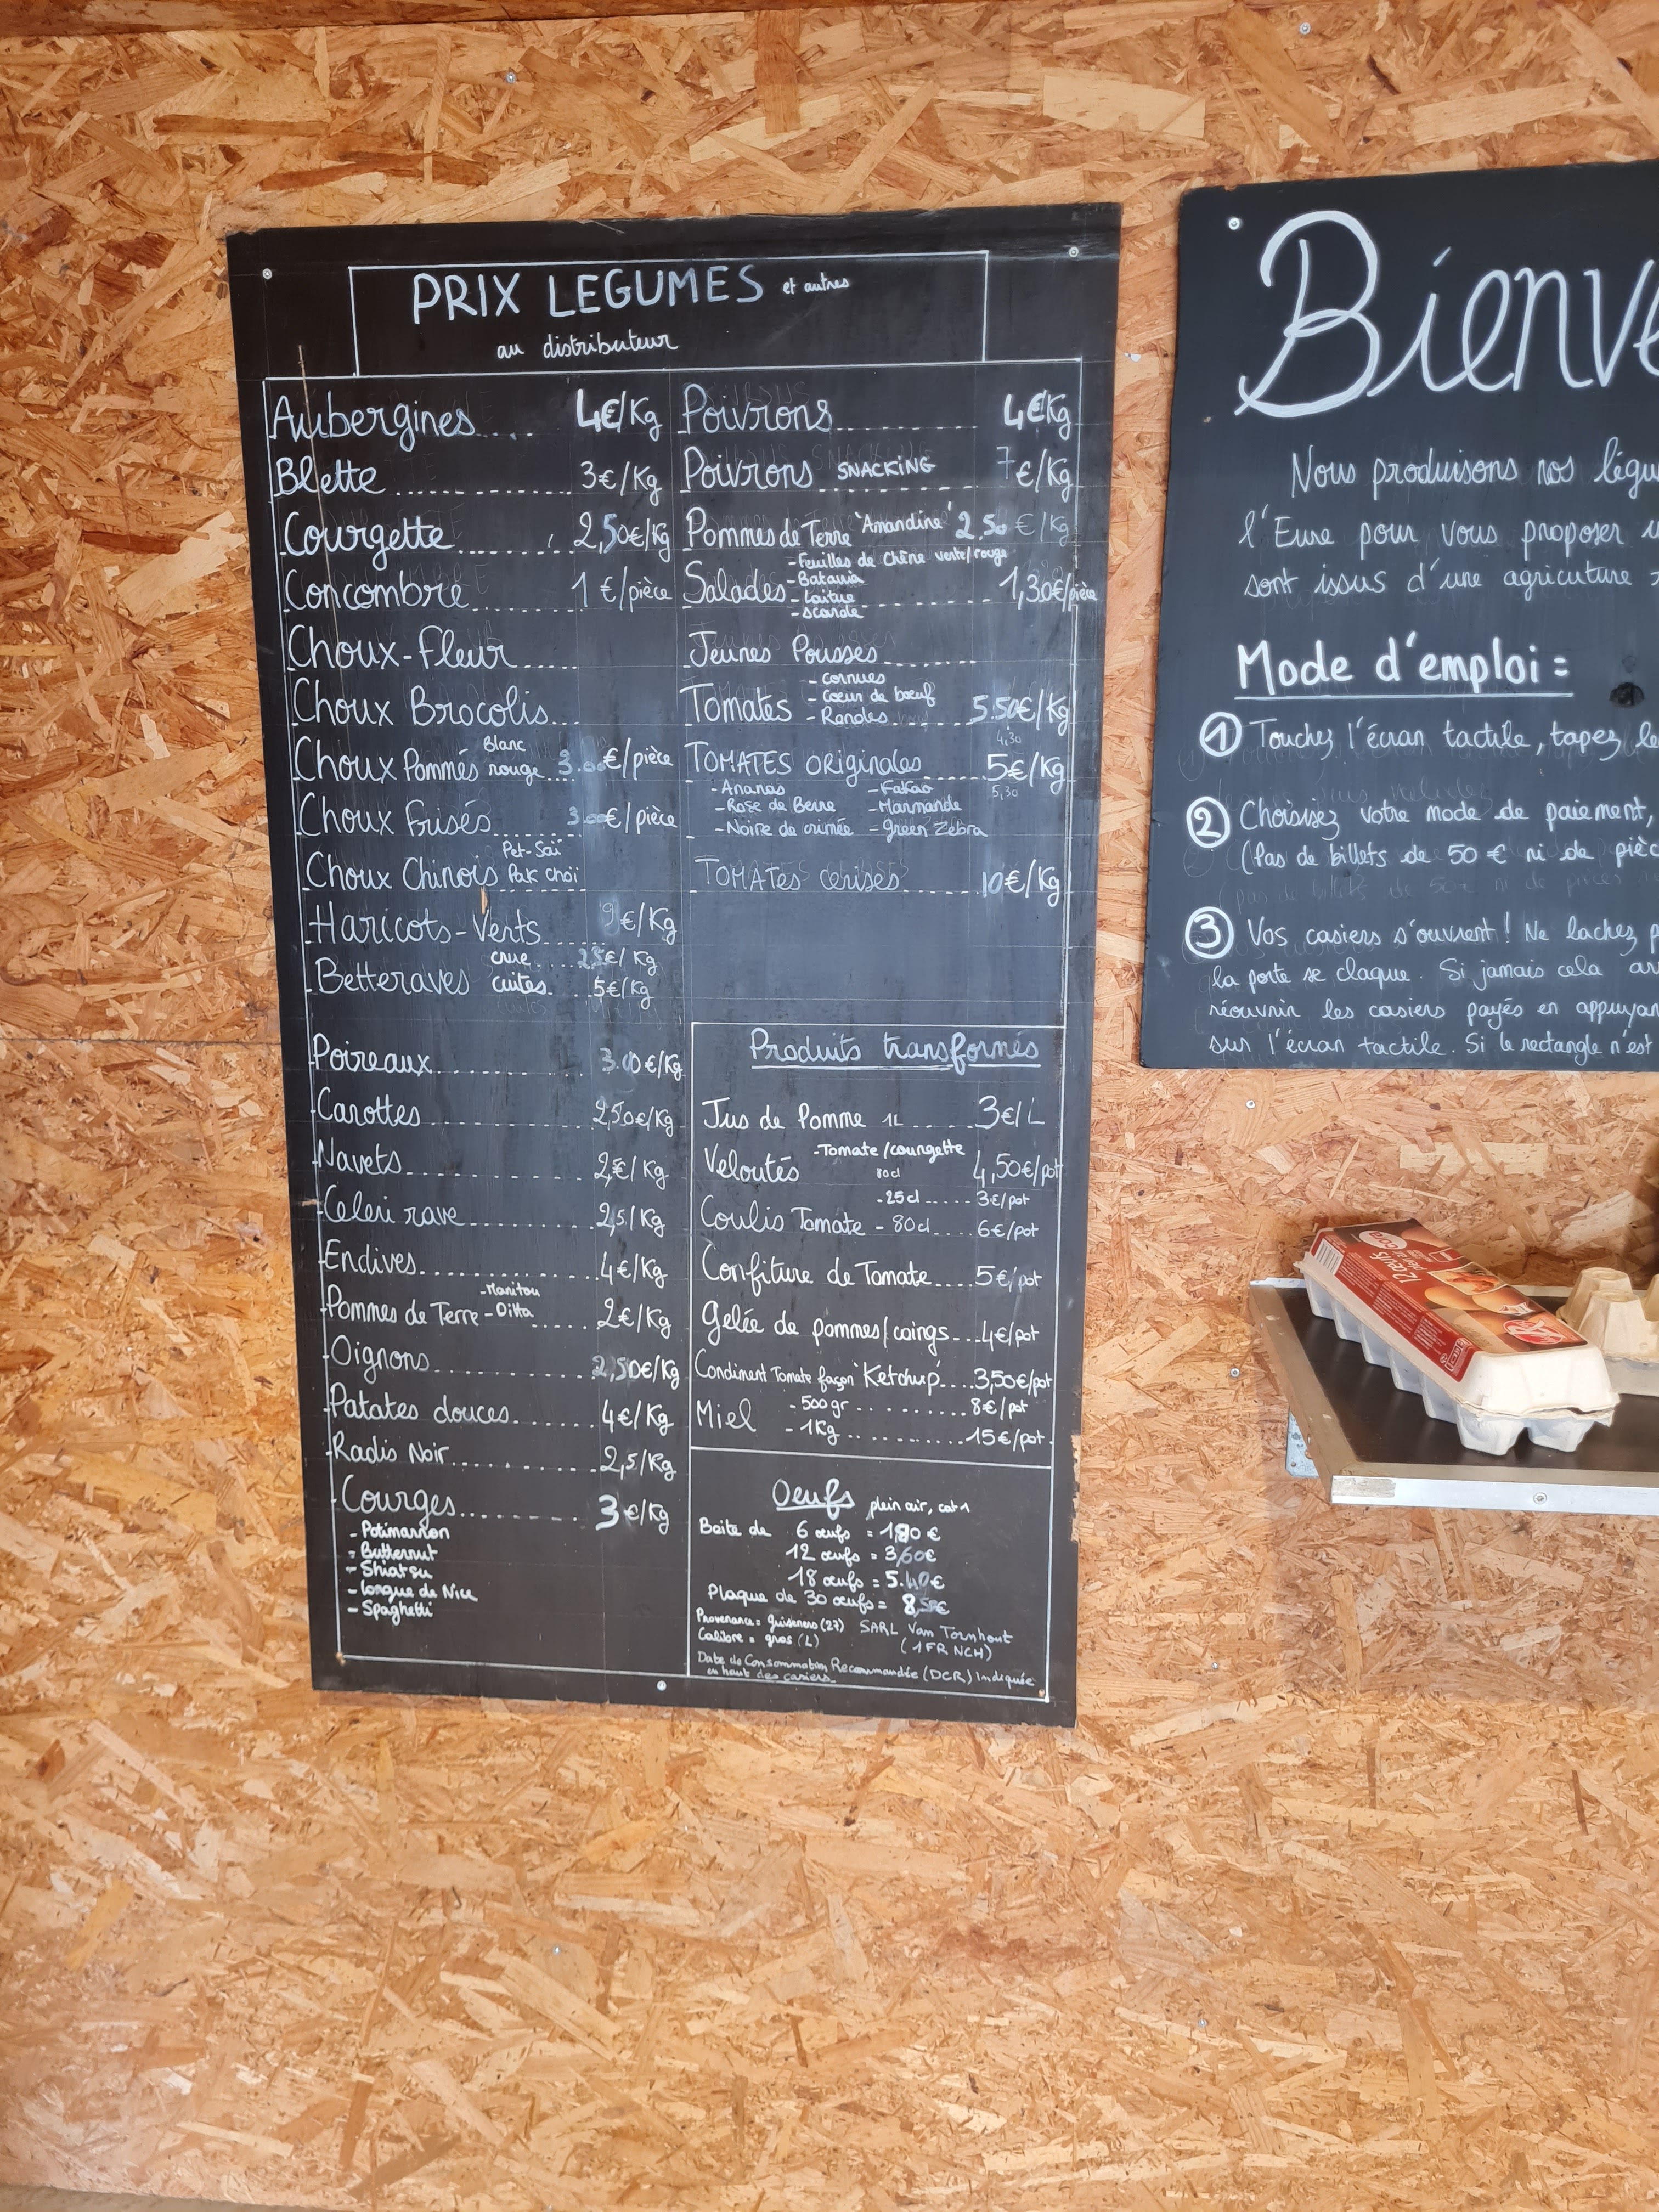 PRIX LEGUMES et autres
au distributeur
Aubergines.... 4€/Kg
Blette................ 3€/Kg
Courgette.......... 2,50€/Kg
Concombre.......... 1 €/pièce
Choux-Fleur......
Choux Brocolis...
Blanc
Choux Pommés rouge...3.00€/pièce
Choux Frisés.......... 3.00€/pièce
Pet-Saï
Choux Chinois Pak choï
Haricots-Verts...... 9€/Kg
crue.....2,5€/Kg
Betteraves cuites....5€/Kg
Poireaux................ 3.00€/Kg
Carottes................ 2,50€/Kg
Navets.................. 2,€/Kg
Celeri rave............. 2,5/Kg
Endives................. 4€/Kg
-Manitou
Pommes de Terre -Ditta ...... 2€/Kg
Oignons................. 2,50€/Kg
Patates douces.......... 4€/Kg
Radis Noir.............. 2,5/Kg
Courges................. 3€/Kg
- Potimarron
- Butternut
- Shiatsu
- longue de Nice
- Spaghetti
Poivrons................ 4€/Kg
Poivrons SNACKING 7€/Kg
Pommes de Terre 'Amandine' 2.50 €/Kg
-Feuilles de Chêne verte/rouge
-Batavia
Salades -Laitue ........ 1,30€/pièce
-scarole
Jeunes Pousses..........
- cornues
- Coeur de boeuf
Tomates - Rondes...... 5.50€/Kg
4,30
TOMATES originales...... 5€/Kg
5,30
-Ananas -Kakao
-Rose de Berne -Marmande
-Noire de crimée -green Zebra
TOMATES cerises......... 10€/Kg
Produits transformés
Jus de Pomme 1L ...... 3€/L
-Tomate/courgette
Veloutés 80cl 4,50€/pot
-25cl..... 3€/pot
Coulis Tomate -80cl.... 6€/pot
Confiture de Tomate.... 5€/pot
Gelée de pommes/coings...4€/pot
Condiment Tomate façon 'Ketchup'....3,50€/pot
-500gr............8€/pot
Miel -1Kg..............15€/pot
Oeufs plein air, cat 1
Boite de 6 œufs = 1,80 €
12 œufs = 3,60€
18 œufs = 5.40€
Plaque de 30 œufs = 8,50€
Provenance = Guiseniers (27) SARL Van Tornhout
Calibre = gros (L) (1FR NCH)
Date de Consommation Recommandée (DCR) Indiquée
en haut des casiers
Bienve
Nous produisons nos légu
l'Eure pour vous proposer u
sont issus d'une agriculture
Mode d'emploi =
1 Touchez l'écran tactile, tapez le
2 Choisisez votre mode de paiement,
(Pas de billets de 50 € ni de pièc
3 Vos casiers s'ouvrent ! Ne lachez p
la porte se claque. Si jamais cela arr
réouvrir les casiers payés en appuyan
sur l'écran tactile. Si le rectangle n'est
12 œufs